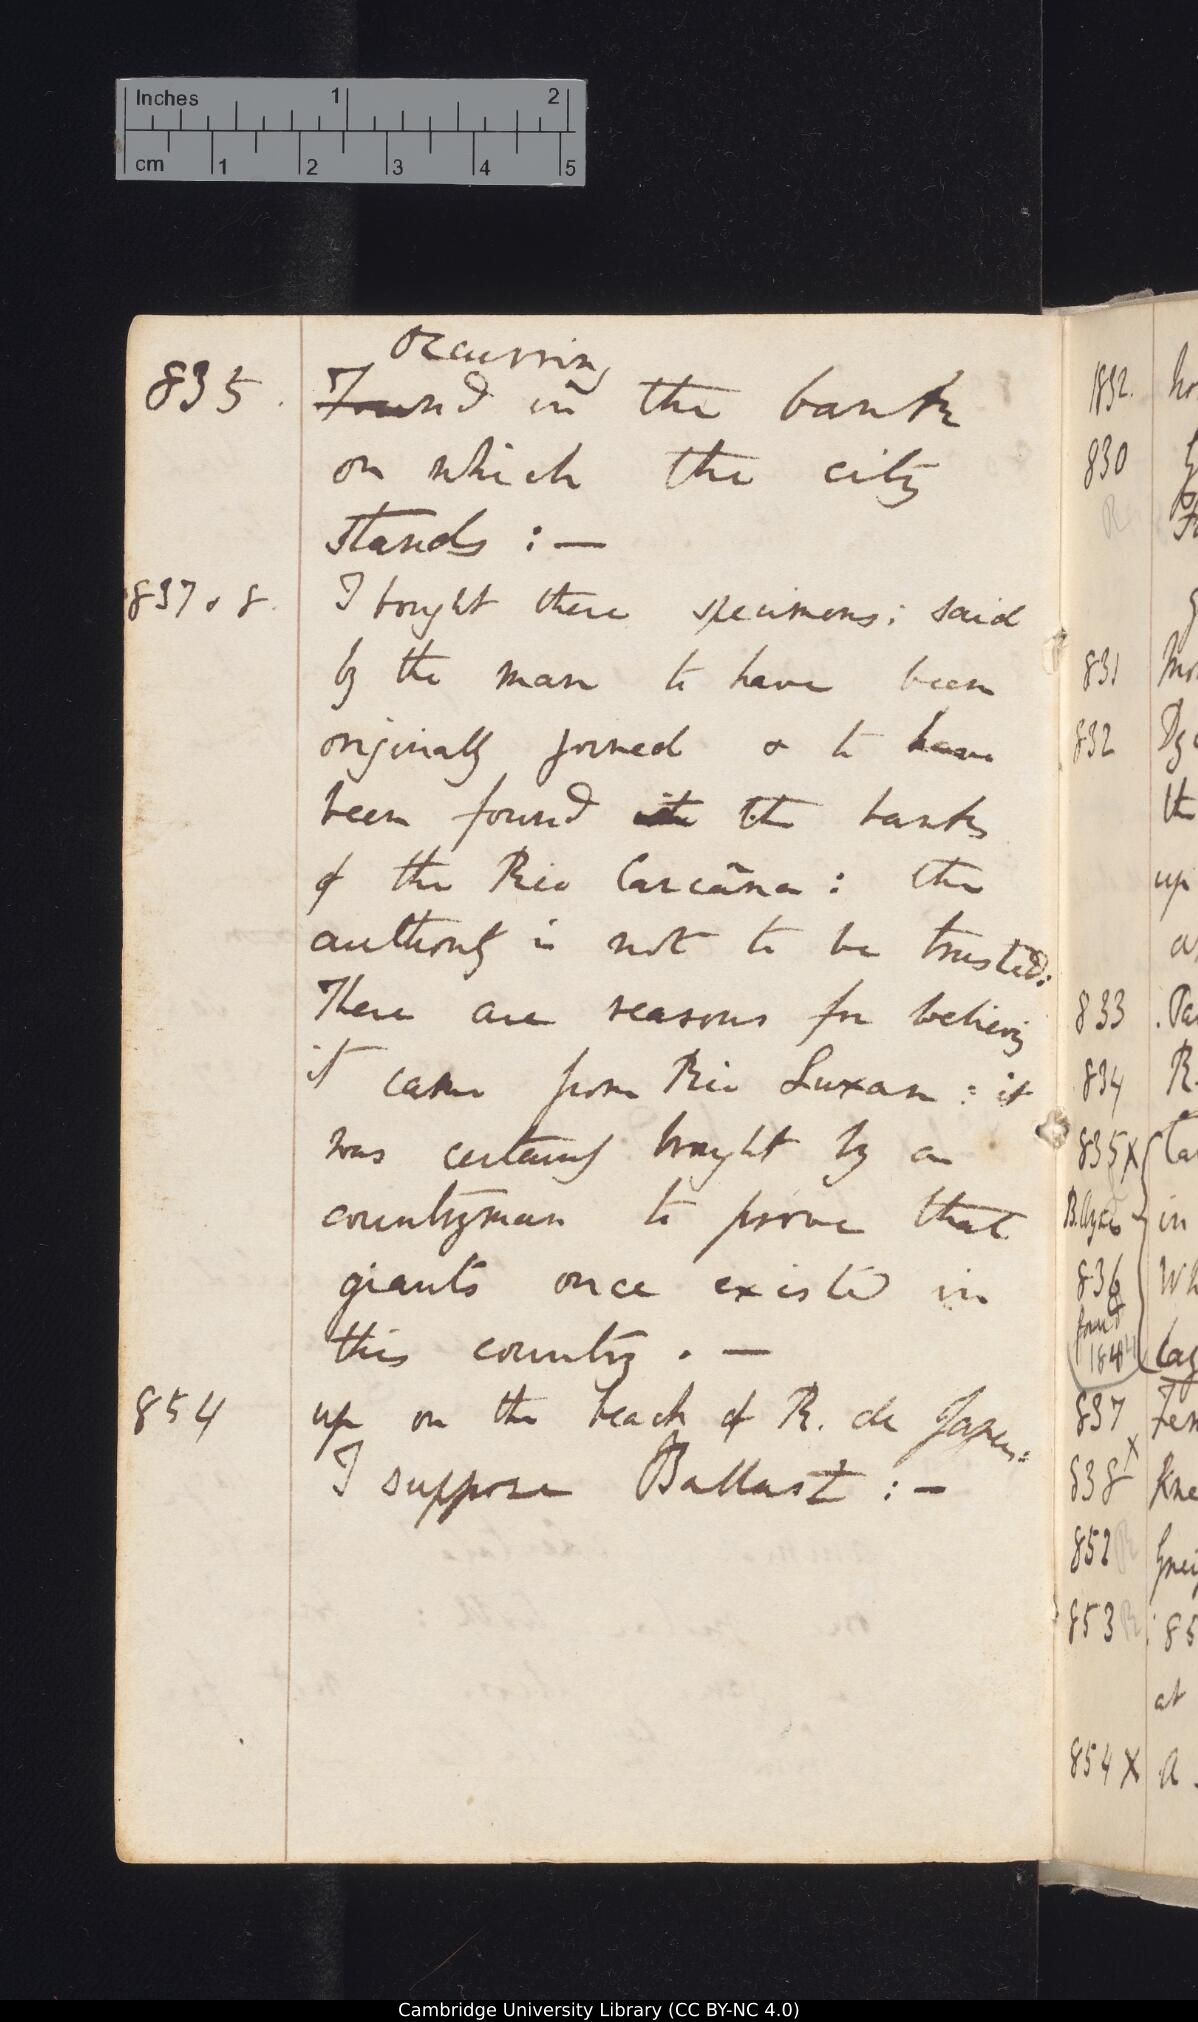 Inches 1 2
cm 1 2 3 4 5
Occurring
835. Found in the bank
on which the city
stands : —
837 & 8. I bought these specimens; said
by the man to have been
originally joined & to have
been found in the banks
of the Rio Carcãna : the
authority is not to be trusted:
There are reasons for believing
it came from Rio Luxan : it
was certainly bought by a
countryman to prove that
giants once existed in
this country . —
854 up on the beach of R. de
I suppose Ballast : —
1832.
830
R
831
832
the
up
833
834 R.
835 X
B. Ayres in
836
found
184
837
838 X
852 R
853 R
at
854 X A
Cambridge University Library (CC BY-NC 4.0)